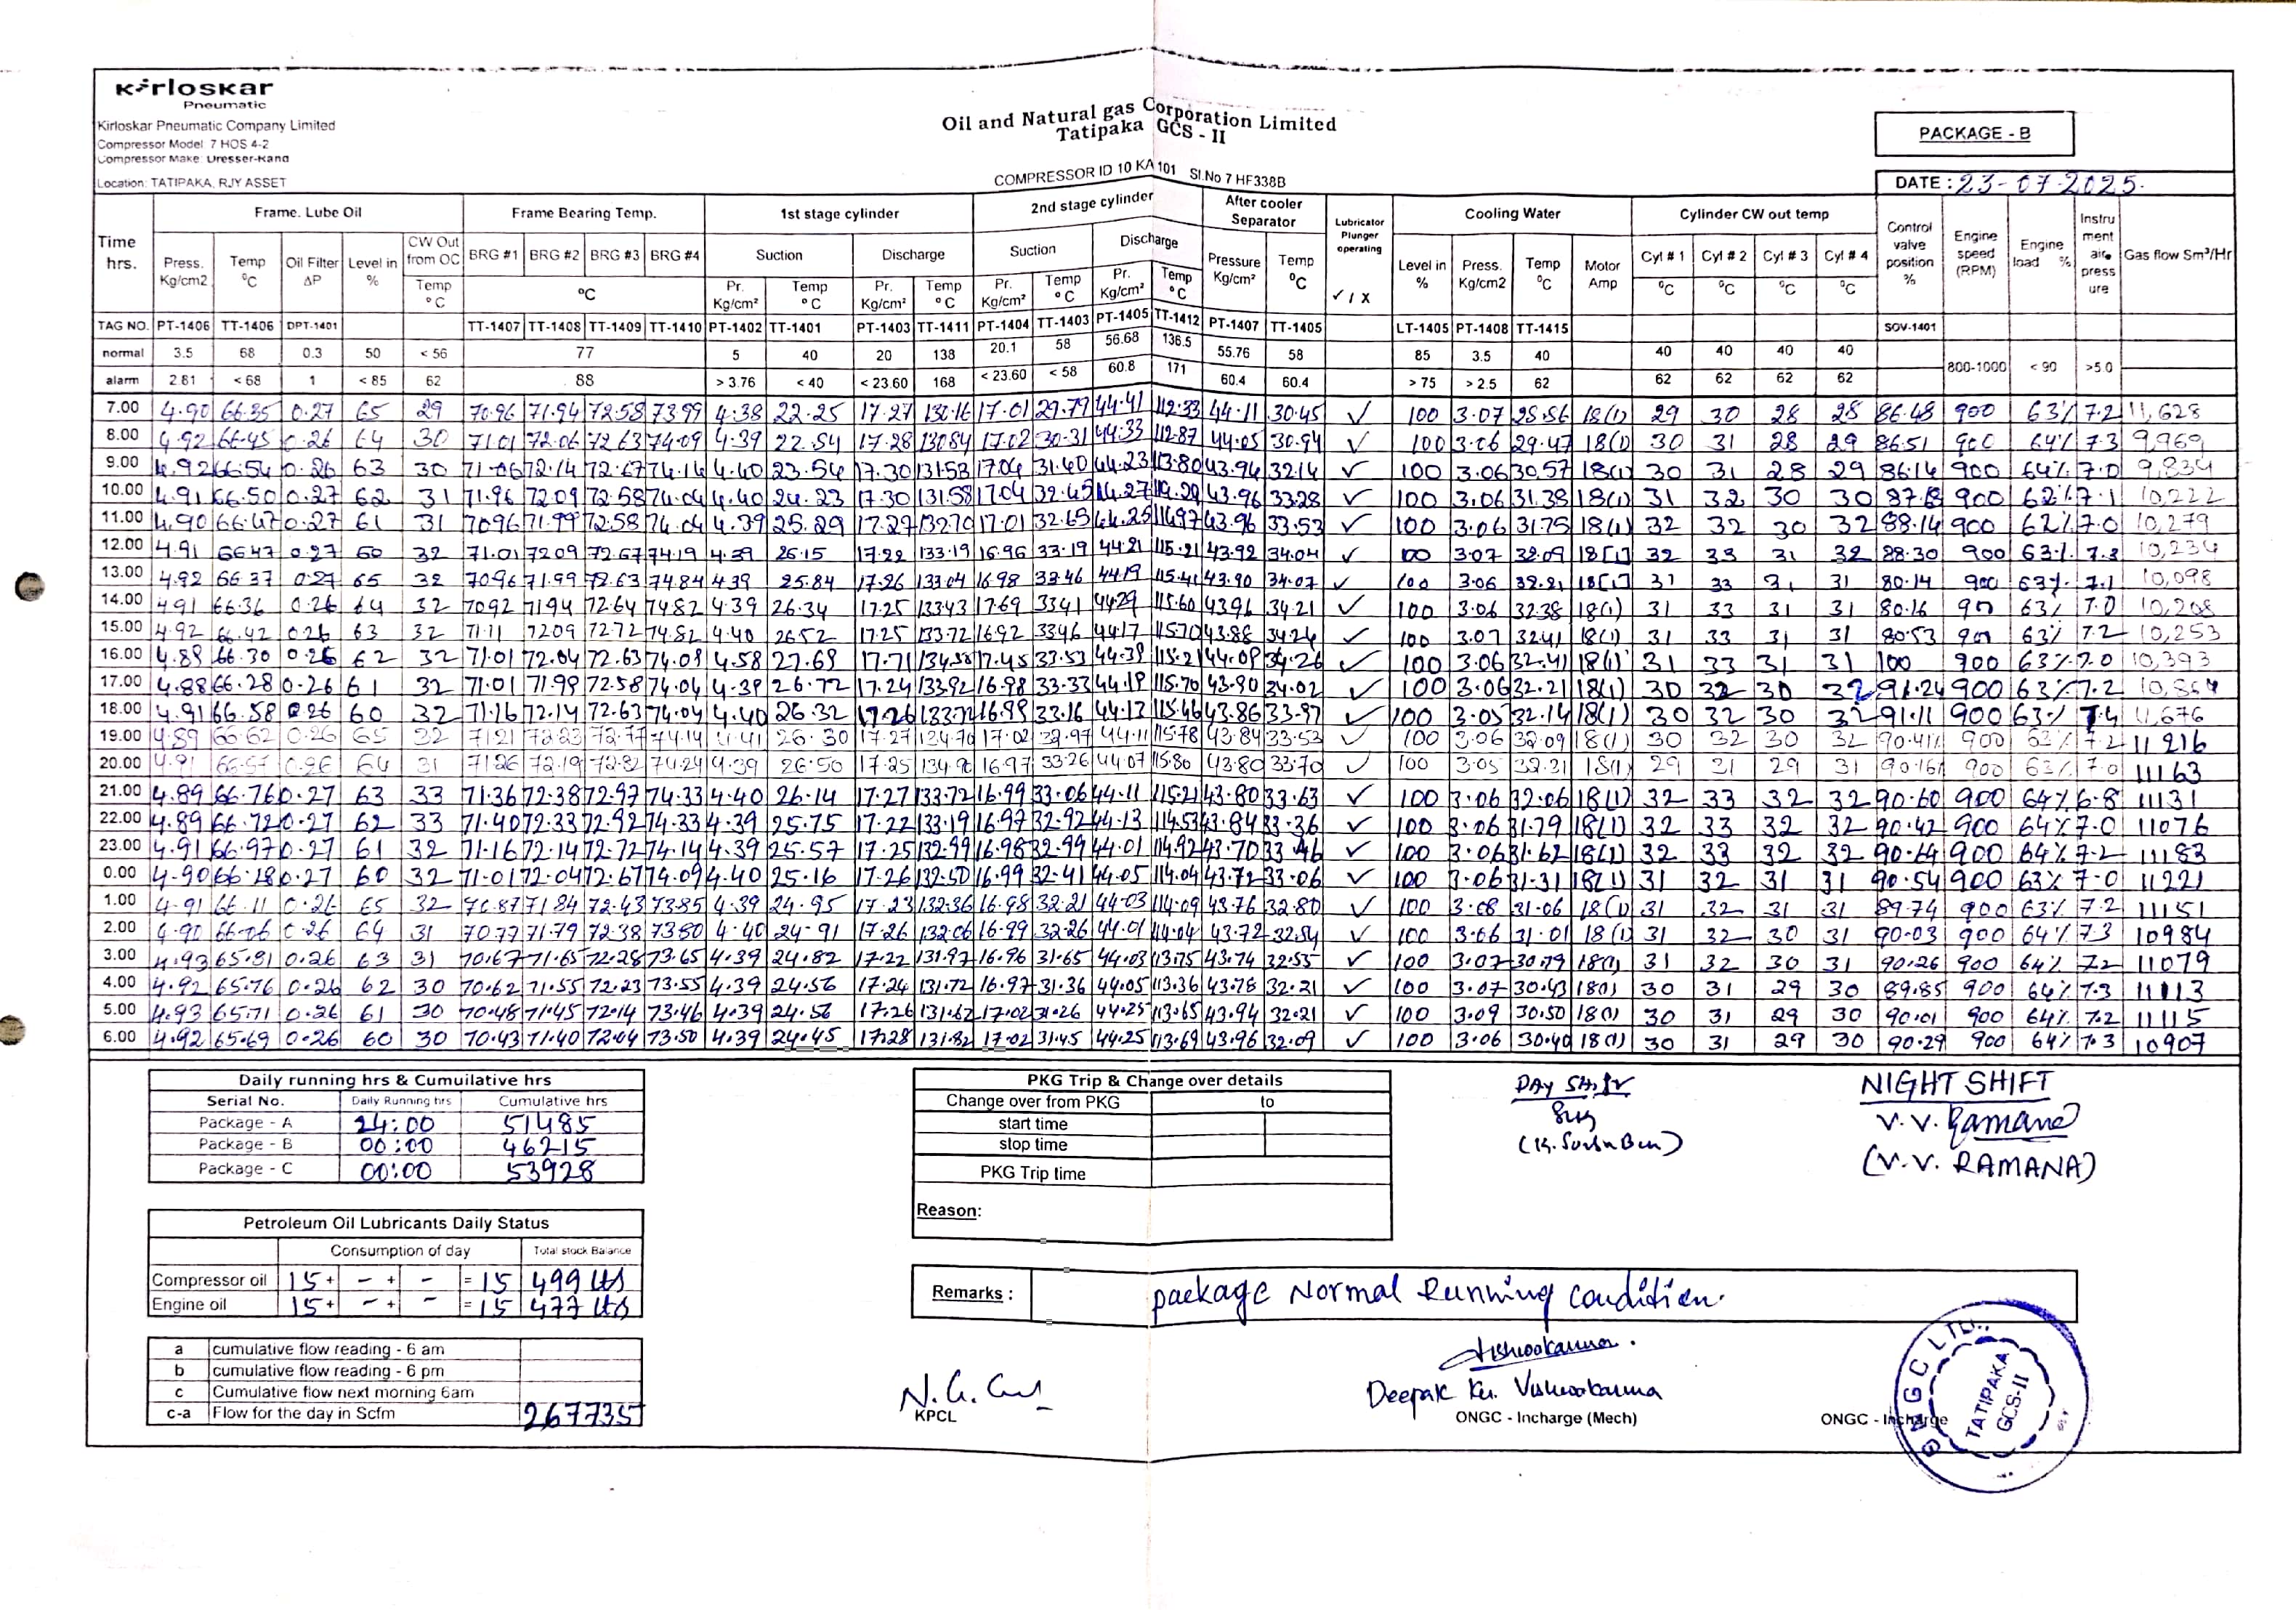 Kirloskar
Pneumatic
Kirloskar Pneumatic Company Limited
Compressor Model 7 HOS 4-2
Compressor Make: Dresser-Rand
Location: TATIPAKA, RJY ASSET
Oil and Natural gas Corporation Limited
Tatipaka GCS - II
COMPRESSOR ID 10 KA 101 Sl.No 7 HF338B
PACKAGE - B
DATE : 23-07-2025.
Time hrs. Frame. Lube Oil Frame Bearing Temp. 1st stage cylinder 2nd stage cylinder After cooler Separator Lubricator Plunger operating Cooling Water Cylinder CW out temp Control valve position % Engine speed (RPM) Engine load % Instru ment air press ure Gas flow Sm³/Hr
Press. Kg/cm2 Temp °C Oil Filter ΔP Level in % CW Out from OC Temp °C BRG #1 BRG #2 BRG #3 BRG #4 °C Suction Discharge Suction Discharge Pressure Kg/cm² Temp °C ✓ / X Level in % Press. Kg/cm2 Temp °C Motor Amp Cyl # 1 Cyl # 2 Cyl # 3 Cyl # 4
Pr. Kg/cm² Temp °C Pr. Kg/cm² Temp °C Pr. Kg/cm² Temp °C Pr. Kg/cm² Temp °C °C °C °C °C
TAG NO. PT-1406 TT-1406 DPT-1401 TT-1407 TT-1408 TT-1409 TT-1410 PT-1402 TT-1401 PT-1403 TT-1411 PT-1404 TT-1403 PT-1405 TT-1412 PT-1407 TT-1405 LT-1405 PT-1408 TT-1415 SOV-1401
normal 3.5 68 0.3 50 < 56 77 5 40 20 138 20.1 58 56.68 136.5 55.76 58 85 3.5 40 40 40 40 40 800-1000 < 90 >5.0
alarm 2.81 < 68 1 < 85 62 88 > 3.76 < 40 < 23.60 168 < 23.60 < 58 60.8 171 60.4 60.4 > 75 > 2.5 62 62 62 62 62
7.00 4.90 66.35 0.27 65 29 70.96 71.94 72.58 73.99 4.38 22.25 17.27 130.16 17.01 29.79 44.41 112.33 44.11 30.45 ✓ 100 3.07 28.56 18(1) 29 30 28 28 86.48 900 63% 7.2 11,628
8.00 4.92 66.45 0.26 64 30 71.01 72.06 72.63 74.09 4.39 22.54 17.28 130.84 17.02 30.31 44.33 112.87 44.05 30.94 ✓ 100 3.06 29.47 18(1) 30 31 28 29 86.51 900 64% 7.3 9,969
9.00 4.92 66.54 0.26 63 30 71.06 72.14 72.67 74.14 4.40 23.54 17.30 131.53 17.04 31.40 44.23 113.80 43.94 32.14 ✓ 100 3.06 30.57 18(1) 30 31 28 29 86.14 900 64% 7.0 9,834
10.00 4.91 66.50 0.27 62 31 71.96 72.09 72.58 74.04 4.40 24.23 17.30 131.58 17.04 32.45 44.27 43.96 33.28 ✓ 100 3.06 31.38 18(1) 31 32 30 30 900 62% 7.1 10,222
11.00 4.90 66.47 0.27 61 31 70.96 71.99 72.58 74.04 4.39 25.29 17.27 132.70 17.01 32.65 44.25 114.97 43.96 33.53 ✓ 100 3.06 31.75 18(1) 32 32 30 32 88.14 900 62% 7.0 10,279
12.00 4.91 66.47 0.27 60 32 71.01 72.09 72.67 74.19 4.39 25.15 17.22 133.19 16.96 33.19 44.21 115.21 43.92 34.04 ✓ 100 3.07 32.09 18[1] 32 33 31 32 88.30 900 63% 7.3 10,234
13.00 4.92 66.37 0.27 65 32 70.96 71.99 72.63 74.84 4.39 25.84 17.26 133.04 16.98 33.46 44.19 115.41 43.90 34.07 ✓ 100 3.06 32.21 18[1] 31 33 31 31 80.14 900 63% 7.1 10,098
14.00 4.91 66.36 0.26 64 32 70.92 71.94 72.64 74.82 4.39 26.34 17.25 133.43 17.69 33.41 44.29 115.60 43.96 34.21 ✓ 100 3.06 32.38 18(1) 31 33 31 31 80.16 900 63% 7.0 10,208
15.00 4.92 66.42 0.26 63 32 71.11 72.09 72.72 74.82 4.40 26.52 17.25 133.72 16.92 33.46 44.17 115.70 43.88 34.24 ✓ 100 3.07 32.41 18(1) 31 33 31 31 80.53 900 63% 7.2 10,253
16.00 4.89 66.30 0.26 62 32 71.01 72.04 72.63 74.09 4.58 27.69 17.71 134.58 17.45 33.53 44.39 115.21 44.09 34.26 ✓ 100 3.06 32.41 18(1) 31 33 31 31 100 900 63% 7.0 10,393
17.00 4.88 66.28 0.26 61 32 71.01 71.99 72.58 74.04 4.39 26.72 17.24 133.92 16.98 33.33 44.19 115.70 43.90 34.02 ✓ 100 3.06 32.21 18(1) 30 32 30 32 91.24 900 63% 7.2
18.00 4.91 66.58 0.26 60 32 71.16 72.14 72.63 74.04 4.40 26.32 17.26 133.72 16.99 33.16 44.13 115.46 43.86 33.97 ✓ 100 3.05 32.14 18(1) 30 32 30 32 91.11 900 63% 7.4 11,676
19.00 4.89 66.62 0.26 65 32 71.21 72.23 72.77 74.14 4.41 26.30 17.27 134.70 17.02 32.97 44.11 115.78 43.84 33.53 ✓ 100 3.06 32.09 18(1) 30 32 30 32 90.41% 900 63% 7.2 11216
20.00 4.91 66.57 0.26 64 31 71.26 72.19 72.82 74.24 4.39 26.50 17.25 134.90 16.97 33.26 44.07 115.80 43.80 33.70 ✓ 100 3.05 32.31 18(1) 29 31 29 31 90.16% 900 63% 7.0 11163
21.00 4.89 66.76 0.27 63 33 71.36 72.38 72.97 74.33 4.40 26.14 17.27 133.72 16.99 33.06 44.11 115.21 43.80 33.63 ✓ 100 3.06 32.06 18(1) 32 33 32 32 90.60 900 64% 6.8 11131
22.00 4.89 66.72 0.27 62 33 71.40 72.33 72.92 74.33 4.39 25.75 17.22 133.19 16.97 32.92 44.13 114.53 43.84 33.36 ✓ 100 3.06 31.79 18(1) 32 33 32 32 90.42 900 64% 7.0 11076
23.00 4.91 66.97 0.27 61 32 71.16 72.14 72.72 74.14 4.39 25.57 17.25 132.99 16.98 32.99 44.01 114.92 43.70 33.46 ✓ 100 3.06 31.62 18(1) 32 33 32 32 90.64 900 64% 7.2 11183
0.00 4.90 66.28 0.27 60 32 71.01 72.04 72.67 74.09 4.40 25.16 17.26 132.50 16.99 32.41 44.05 114.04 43.72 33.06 ✓ 100 3.06 31.31 18(1) 31 32 31 31 90.54 900 63% 7.0 11221
1.00 4.91 66.11 0.26 65 32 70.87 71.84 72.43 73.85 4.39 24.95 17.23 132.36 16.98 32.21 44.03 114.09 43.76 32.80 ✓ 100 3.08 31.06 18(1) 31 32 31 31 89.74 900 63% 7.2 11151
2.00 4.90 66.06 0.26 64 31 70.77 71.79 72.38 73.80 4.40 24.91 17.26 132.06 16.99 32.26 44.01 114.04 43.72 32.54 ✓ 100 3.06 31.01 18(1) 31 32 30 31 90.03 900 64% 7.3 10984
3.00 4.93 65.81 0.26 63 31 70.67 71.65 72.28 73.65 4.39 24.82 17.22 131.97 16.96 31.65 44.03 113.75 43.74 32.55 ✓ 100 3.07 30.79 18(1) 31 32 30 31 90.26 900 64% 7.2 11079
4.00 4.92 65.76 0.26 62 30 70.62 71.55 72.23 73.55 4.39 24.56 17.24 131.72 16.97 31.36 44.05 113.36 43.78 32.31 ✓ 100 3.07 30.43 18(1) 30 31 29 30 89.85 900 64% 7.3 11113
5.00 4.93 65.71 0.26 61 30 70.48 71.45 72.14 73.46 4.39 24.56 17.26 131.62 17.02 31.26 44.25 113.65 43.94 32.21 ✓ 100 3.09 30.50 18(1) 30 31 29 30 90.01 900 64% 7.2 11115
6.00 4.92 65.69 0.26 60 30 70.43 71.40 72.04 73.50 4.39 24.45 17.28 131.82 17.02 31.45 44.25 113.69 43.96 32.09 ✓ 100 3.06 30.40 18(1) 30 31 29 30 90.29 900 64% 7.3 10907
Daily running hrs & Cumuilative hrs
Serial No. Daily Running hrs Cumulative hrs
Package - A 24:00 51485
Package - B 00:00 46215
Package - C 00:00 53928
Petroleum Oil Lubricants Daily Status
Consumption of day Total stock Balance
Compressor oil 15 + - + - = 15 499 Lts
Engine oil 15 + - + - = 15 477 Lts
a cumulative flow reading - 6 am
b cumulative flow reading - 6 pm
c Cumulative flow next morning 6am
c-a Flow for the day in Scfm 267735
PKG Trip & Change over details
Change over from PKG to
start time
stop time
PKG Trip time
Reason:
DAY Shift
NIGHT SHIFT
V.V. Ramana
(V.V. RAMANA)
Remarks : package Normal Running condition.
KPCL
Vishwokarma.
Deepak Kr. Vishwokarma
ONGC - Incharge (Mech)
ONGC - Incharge
ONGC LTD.,
TATIPAKA
GCS-II